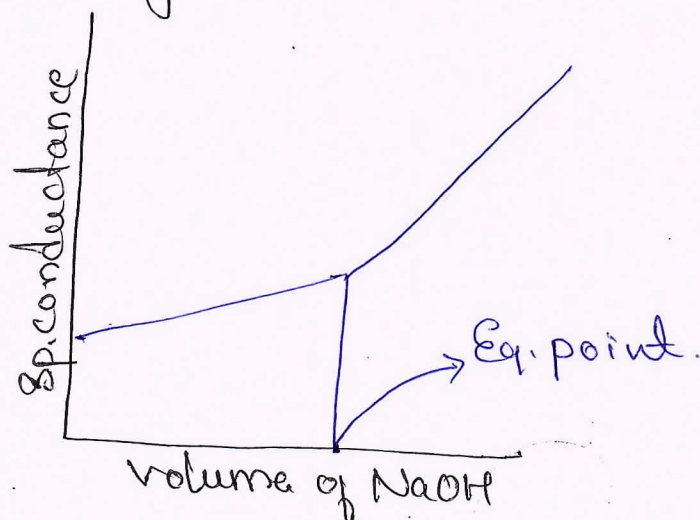 Sp. conductance
Eq. point.
volume of NaOH